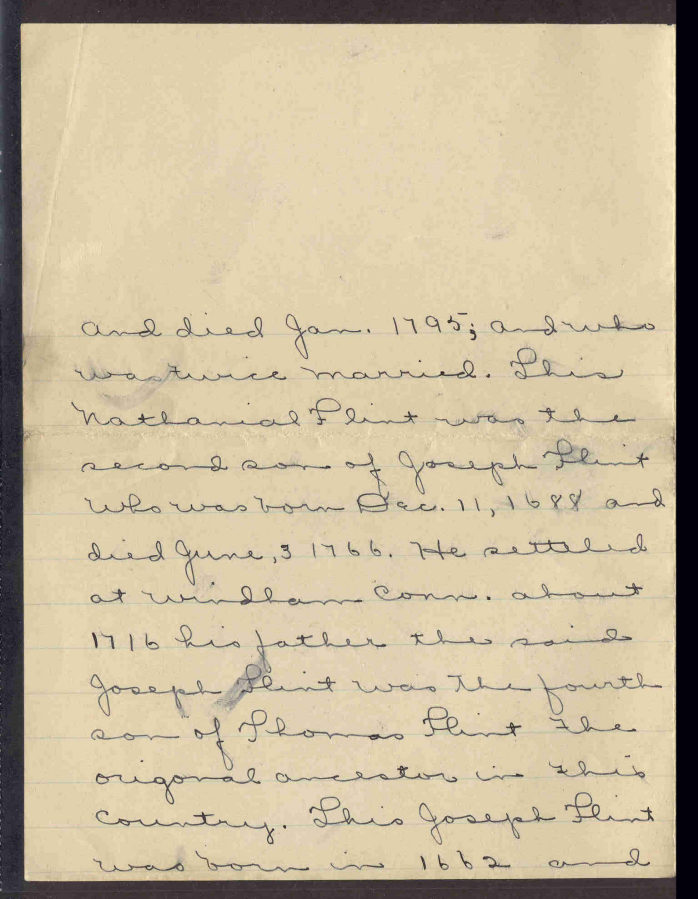 and died Jan. 1795; and who
was twice married. This
Nathanial Flint was the
second son of Joseph Flint
who was born Dec. 11, 1688 and
died June, 3 1766. He setteled
at Windham Conn. about
1716 his father the said
Joseph Flint was the fourth
son of Thomas Flint the
origonal ancestor in this
country. This Joseph Flint
was born in 1662 and